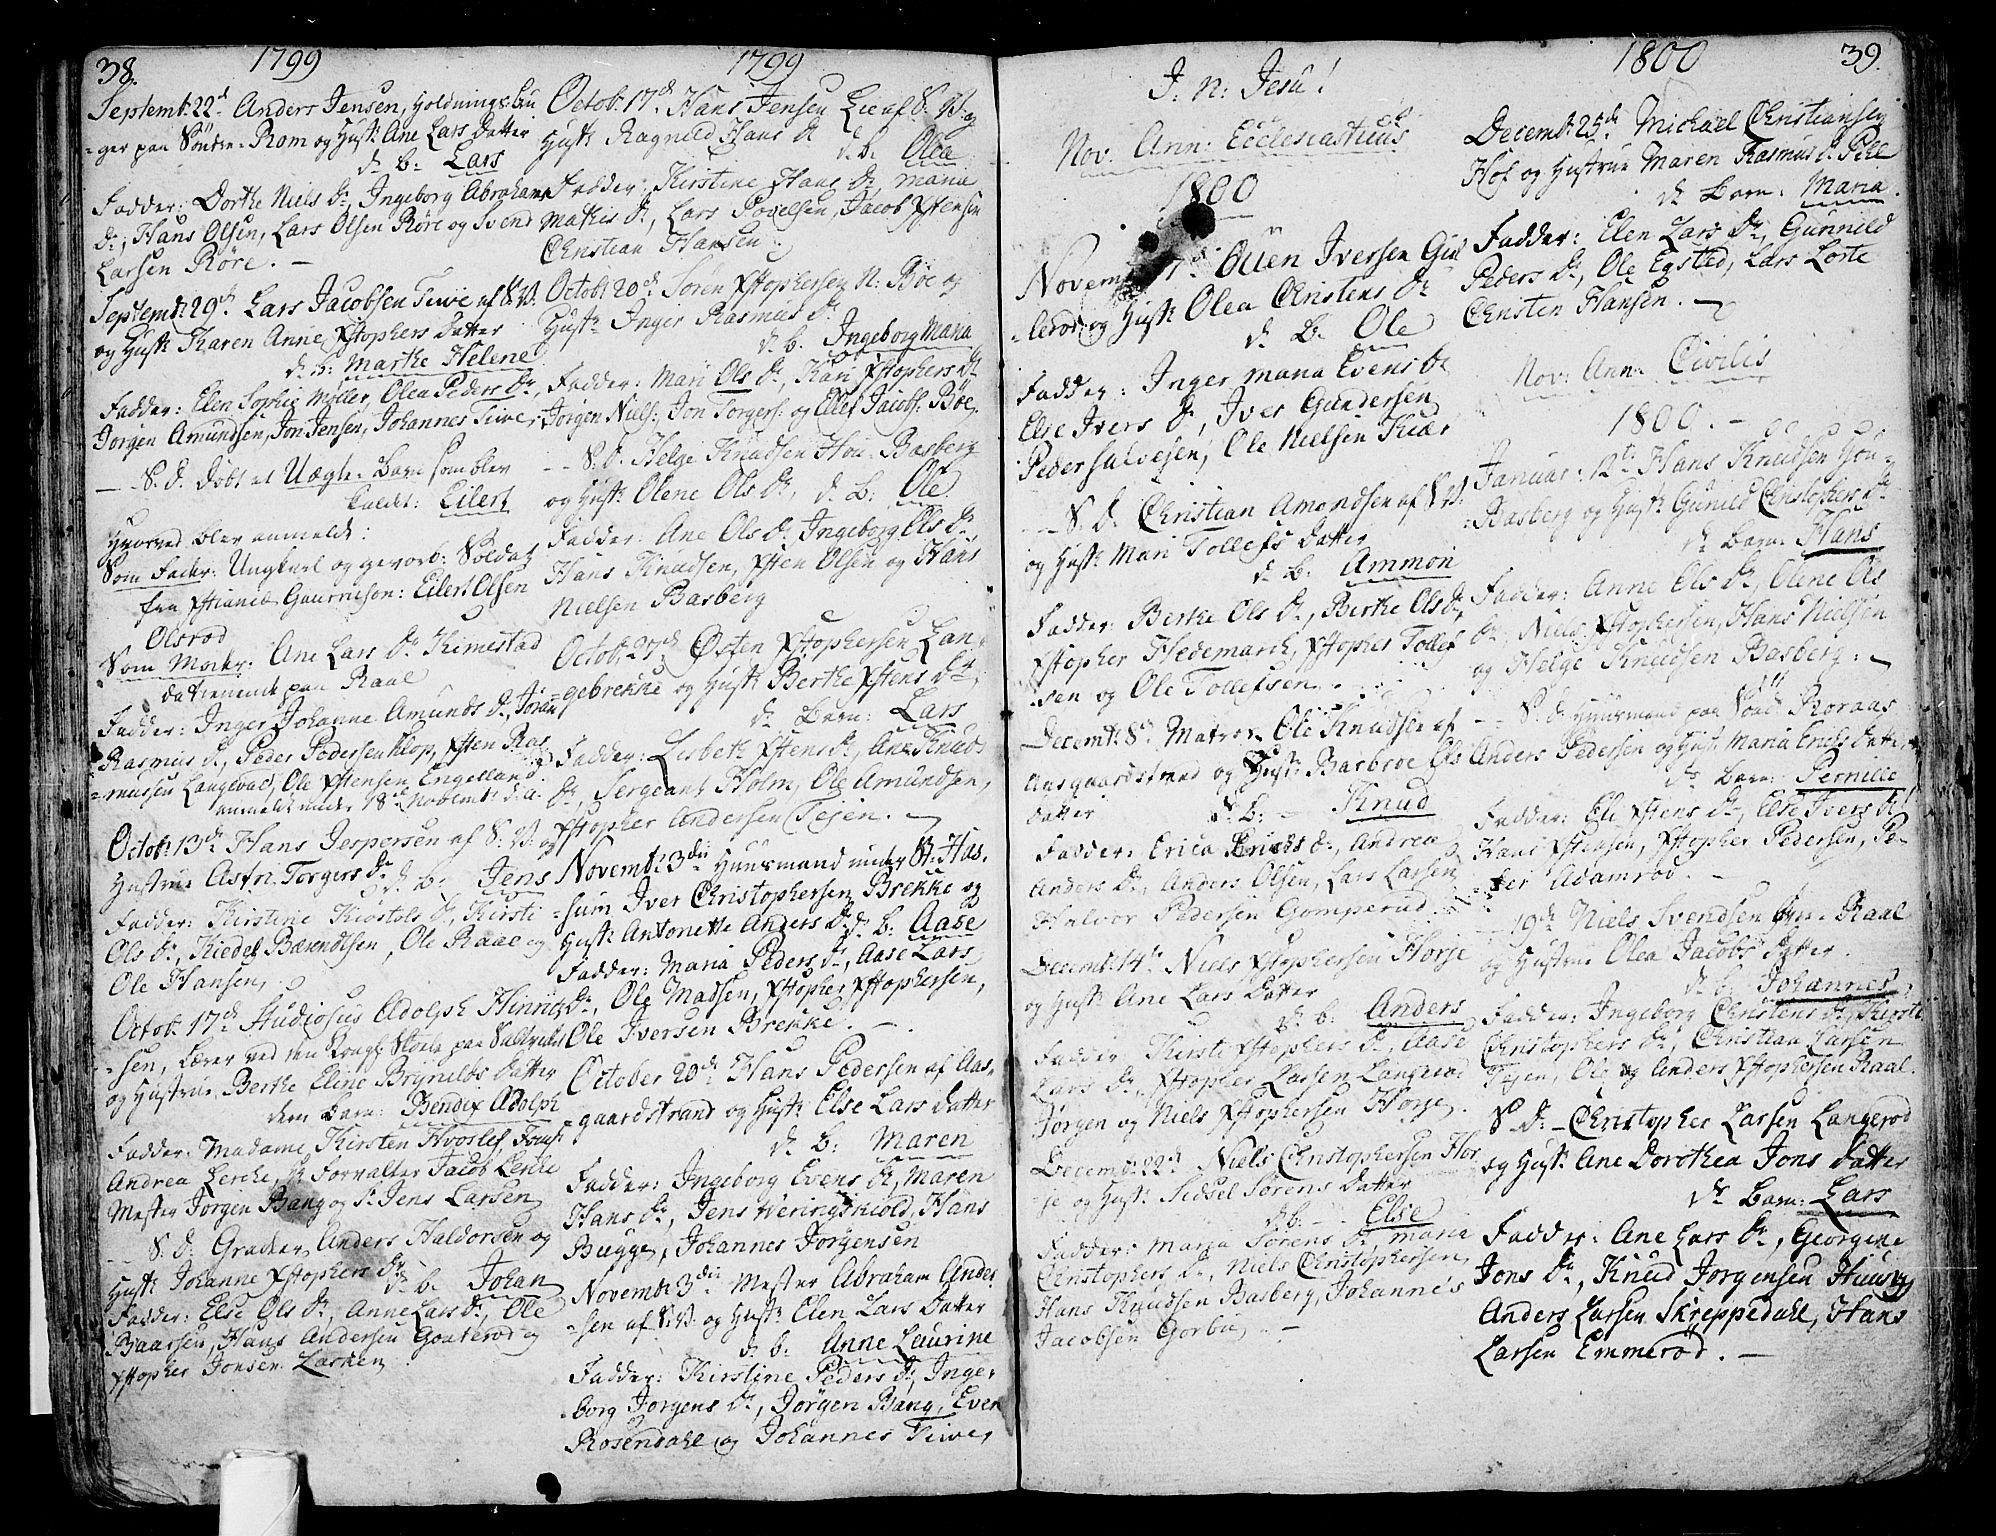 38.
1799
Septemb: 22de Anders Jensen, Holdningsbru
ger paa Söndre-Rom og Hustr. Ane Lars Datter
d. B: Lars
Fadder: Dorthe Niels Dr, Ingeborg Abrahams
Dr, Hans Olsen, Lars Olsen Röre og Svend
Larsen Röre. —
Septemb: 29de Lars Jacobsen Tuve af S. V.
og Hustr. Karen Anne Xstophers Datter
d. B: Marthe Helene
Fadder: Elen Sophie Möller, Olea Peders Dr,
Jörgen Amundsen, Jon Jensen, Johannes Tuve
— S. D. Döbt et Uægte Barn som blev
kaldt: Eilert
Hvorved blev anmeldt:
Som Fader: Ungkarl og gevorb: Soldat
fra Xstianiæ Gaurnison: Eilert Olsen
Olsrod
Som Moder: Ane Lars Dr Kimestad
da tienende paa Raal
Fadder: Inger Johanne Amunds Dr, Joran
Rasmus Dr, Peder Pedersen Klop, Xsten Ras
mussen Langevad, Ole Xstensen Engelland
anmeldt under 18de Novembr d. a.
Octob: 13de Hans Jespersen af S. V. og
Hustrue Astri Torgers Dr
d. B: Jens
Fadder: Kirstine Kiöstols Dr, Kirsti
Ols Dr, Kiedel Bærendtsen, Ole Raal og
Ole Hansen,
Octob: 17de Studiosus Adolph Hinrik
sen, Lærer ved den Kongl. Skole paa Saltværket
og Hustrue Berthe Eline Brynilds Datter
dem Barn: Bendix Adolph
Fadder: Madame Kirsten Hvoslef, Jomf:
Andrea Lerche, Hr Forvalter Jacob Lerche
Mester Jörgen Bang og Sr Jens Larsen
— S. D. Gradeer Anders Haldorsen og
Hustr. Johanne Xstophers Dr
d. B: Johan
Fadder: Else Ols Dr, Anne Lars Dr, Ole
Baarsen, Hans Andersen Goaterod og
Xstopher Jonsen Larken
1799
Octob: 17de Hans Jensen Lie af S. V. og
Hustr. Ragnild Hans Dr
d. b. Olea
Fadder: Kirstine Hans Dr, Maria
Mathis Dr, Lars Povelsen, Jacob Xstensen
Christian Hansen.
Octob: 20de Sören Xstophersen N: Böe og
Hustr. Inger Rasmus Dr
d. b. Ingeborg Maria
Fadder: Mari Ols Dr, Kari Xstophers Dr
Jörgen Niels: Jon Torgers: og Ellef Jacobs: Böe
— S. D. Helge Knudsen Hou-Basberg
og Hustr. Olene Ols Dr, d. B: Ole
Fadder: Ane Ols Dr Ingeborg Ols Dr
Hans Knudsen, Xsten Olsen og Hans
Nielsen Basberg
Octob: 27de Østen Xstophersen Lan-
gebrekke og Hustr Berthe Xstens Dr
d. Barn: Lars
Fadder: Lisbeth Xstens Dr, Ane Knuds
Dr, Sergeant Holm, Ole Amundsen,
Xstopher Andersen Tejen. —
Novemb: 3die Huusmand under B. Has-
sum Iver Christophersen Brekke og
Hustr. Antonette Anders Dr d. B: Aase
Fadder: Maria Peders Dr, Aase Lars
Dr, Ole Madsen, Xstopher Xstophersen,
Ole Iversen Brekke. —
October 20de Hans Pedersen af Aas-
gaardstrand og Hustr. Else Lars Datter
d. B: Maren
Fadder: Ingeborg Evens Dr, Maren
Hans Dr, Jens Weringskiold, Hans
Bugge, Johannes Jörgensen
Novemb: 3die Mester Abraham Ander
sen af S: V: og Hustr. Elen Lars Datter
d. b. Anne Laurine
Fadder: Kirstine Peders Dr, Inge-
borg Jörgens Dr, Jörgen Bang, Even
Rosendahl og Johannes Tuve,
J. N: Jesu!
Nov. Ann: Ecclesiasticus
1800
Novem 1de Ouen Iversen Gul
lerod og Hustr Olea Christens Dr
d. B: Ole
Fadder: Inger Maria Evens Dr
Else Ivers Dr, Iver Gundersen
Peder Salvesen, Ole Nielsen Kiær
— S. D. Christian Amondsen af S: V.
og Hustr Mari Tollefs Datter
d. B: Ammon
Fadder: Berthe Ols Dr, Berthe Ols Dr,
Xstopher Hedemarch, Xstopher Tollef
sen og Ole Tollefsen.
Decemb: 8de Matros Ole Knudsen af
Aasgaardstrand og Hustr. Barbroe Ols
Datter
d. B: Knud
Fadder: Erica Erichs Dr, Andrea
Anders Dr, Anders Olsen, Lars Larsen
Halvor Pedersen Gomperud
Decemb: 14de Niels Xstophersen Horje
og Hustr Ane Lars Datter
d. b: Anders
Fadder: Kirsti Xstophers Dr, Aase
Lars Dr, Xstopher Larsen Langerod
Jörgen og Niels Xstophersen Horje.
Decemb: 22de Niels Christophersen Hor
je og Hustr. Sidsel Sörens Datter
d. b. — Else
Fadder: Maria Sörens Dr Maria
Christophers Dr, Niels Christophersen,
Hans Knudsen Basberg, Johannes
Jacobsen Gorbu, —
1800
39.
Decemb: 25de Michael Christiansen
Hof og Hustrue Maren Rasmus Dr Pehl
d. Barn: Maria
Fadder: Elen Lars Dr, Gunnild
Peders Dr, Ole Egsted, Lars Lofte
Christen Hansen. —
Nov: Ann: Civilis
1800. —
Januar: 12te Hans Knudsen Hou-
Basberg og Hustr. Gunild Christophers Dr
d. Barn: Hans
Fadder: Anne Ols Dr, Olene Ols
Dr, Niels Xstophersen, Hans Nielsen
og Helge Knudsen Basberg. —
— S. D. Huusmand paa Sönd. Roraas
Anders Pedersen og Hustr Maria Erichs Datter,
d. Barn: Pernille
Fadder: Eli Xstens Dr, Else Ivers Dr
Hans Xstensen, Xstopher Pedersen, Pe-
der Adamrod. —
— 19de Niels Svendsen Raal
og Hustrue Olea Jacobs Datter.
d. b: Johannes
Fadder: Ingeborg Christens Dr, Kirsti
Christophers Dr, Christian Larsen
Tejen, Ole og Anders Xstophersen Raal.
S. D. — Christopher Larsen Langerod
og Hustr. Ane Dorothea Jons Datter
d. Barn: Lars
Fadder: Ane Lars Dr, Georgene
Jons Dr, Knud Jorgensen Huusby,
Anders Larsen Skreppedahl, Hans
Larsen Emmerod. —